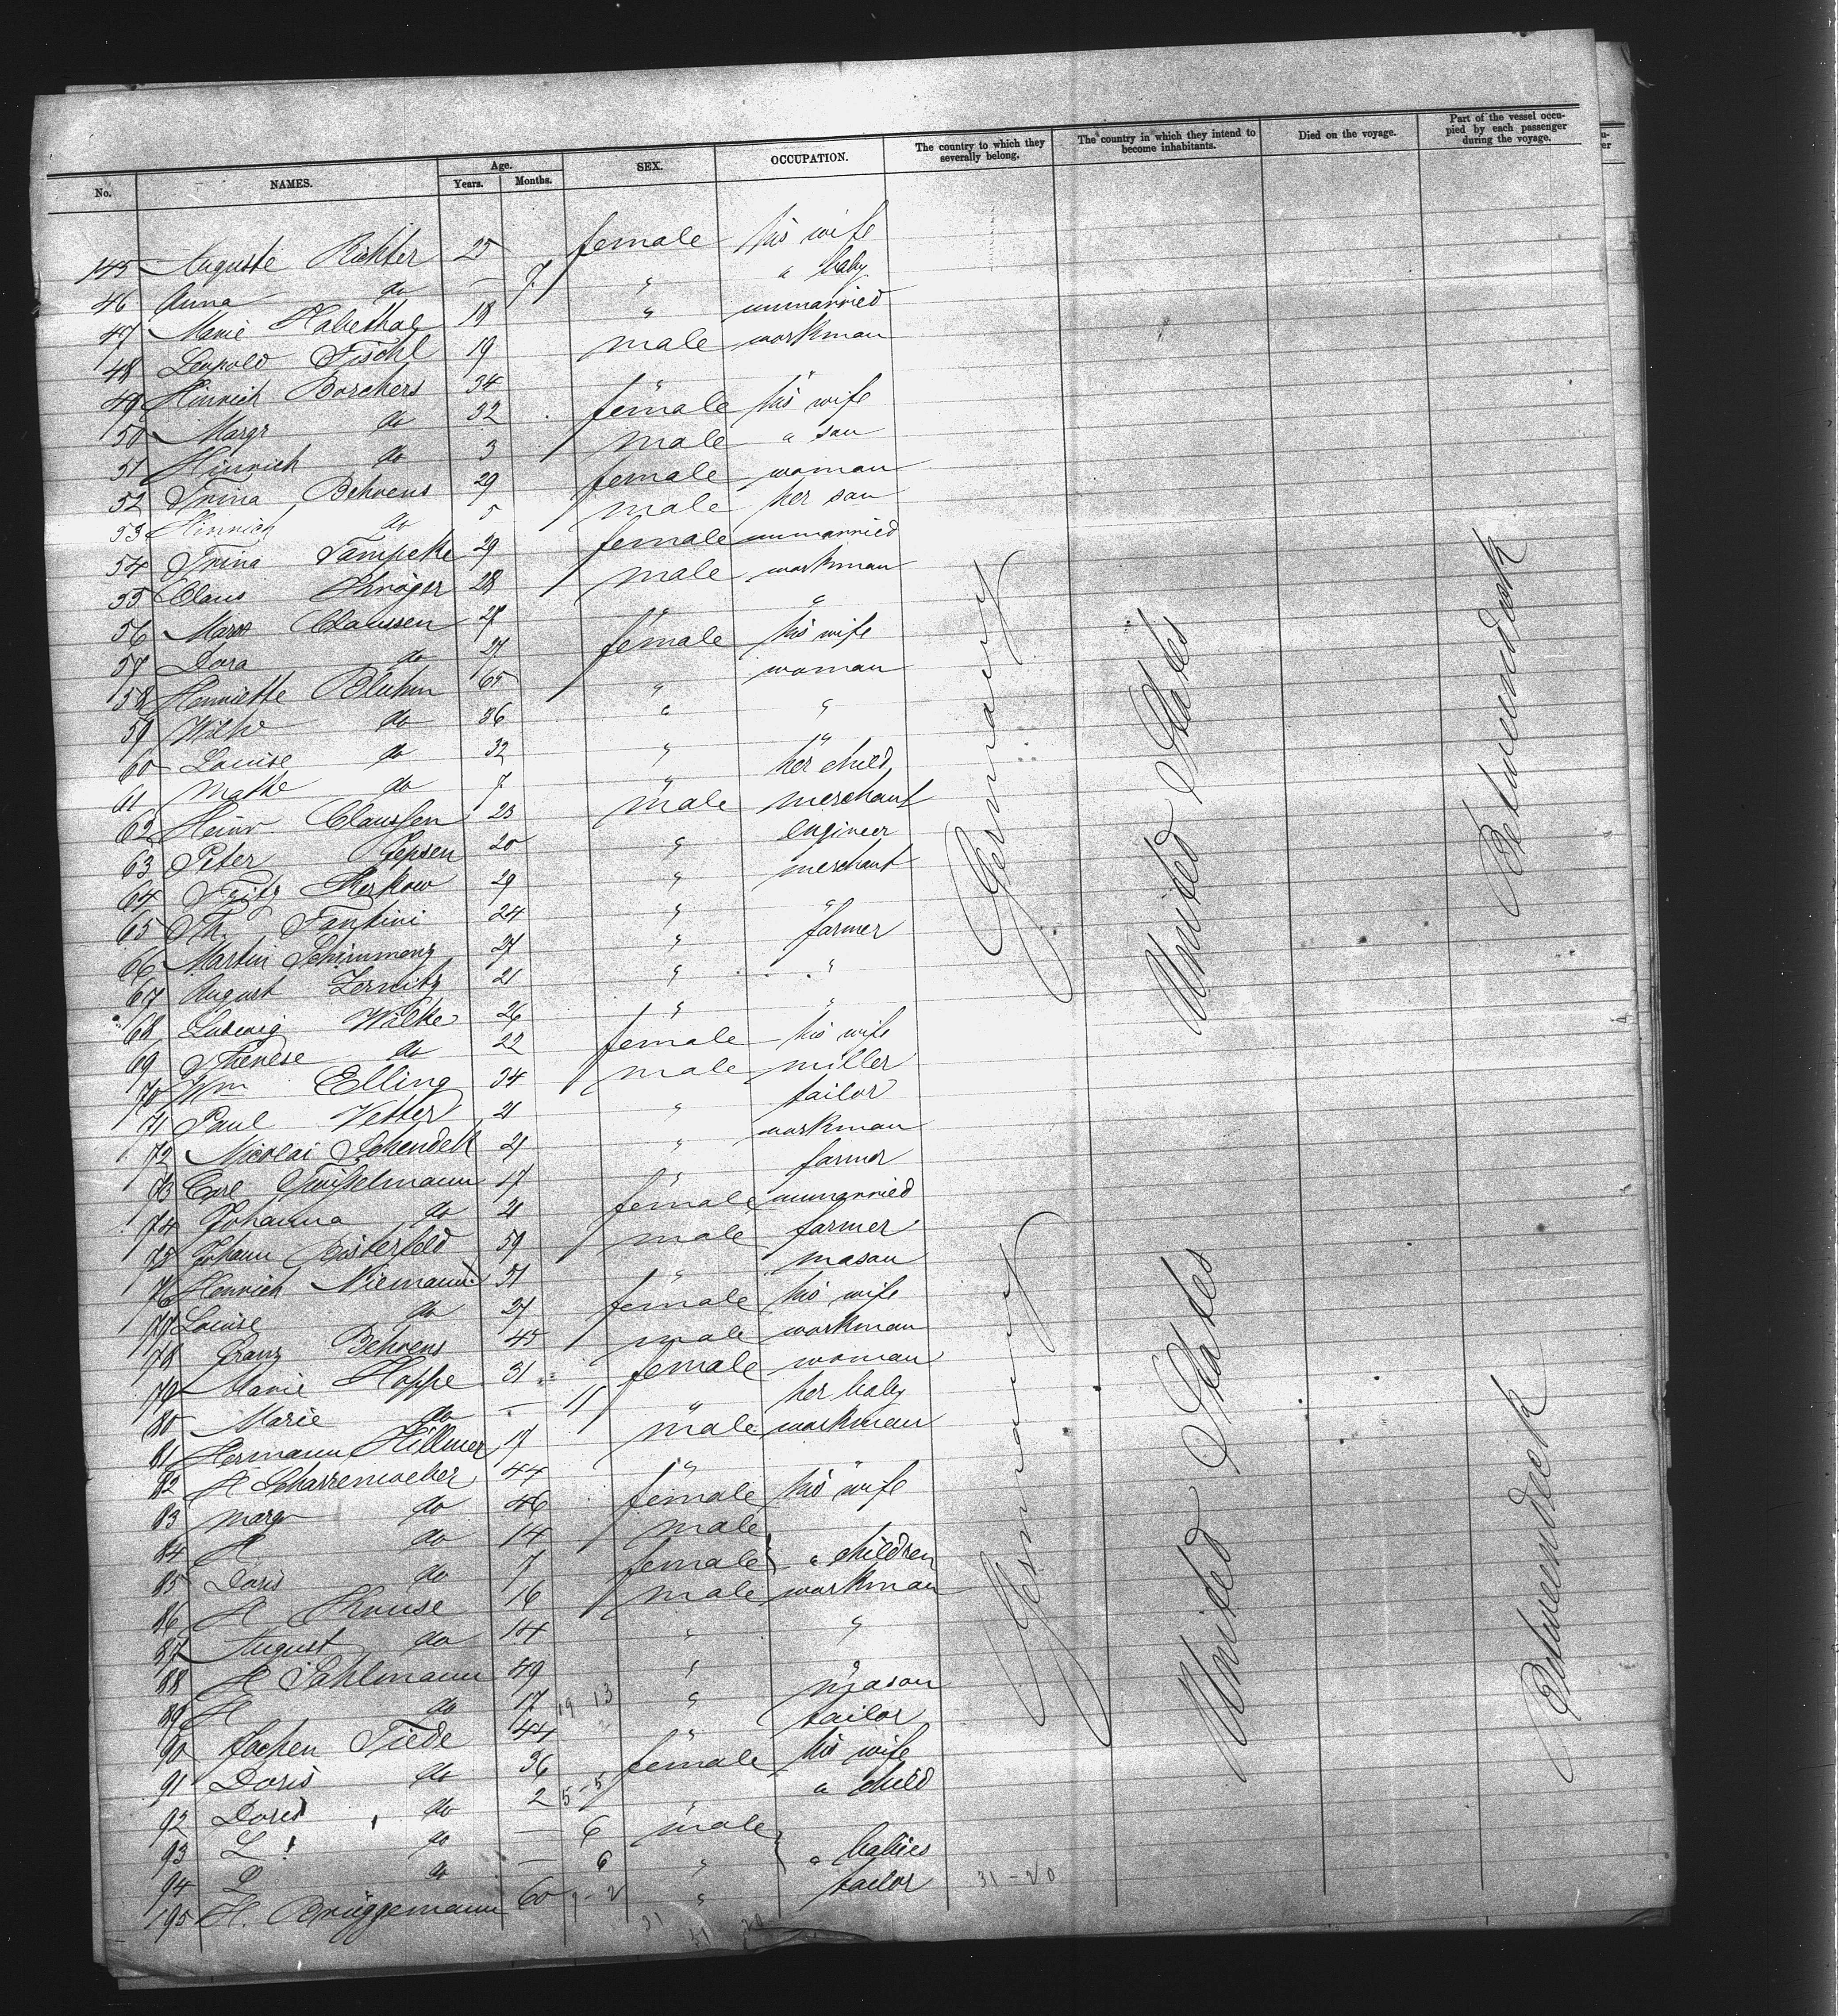 No. NAMES. Age. Years. Months. SEX. OCCUPATION. The country to which they severally belong. The country in which they intend to become inhabitants. Died on the voyage. Part of the vessel occupied by each passenger during the voyage.
145 Auguste Richter 25 female his wife
46 Anna do — 7 " " baby
47 Marie Habethal 18 " unmarried
48 Leopold Fischl 19 male workman
49 Hinrich Borchers 34 " "
50 Margr do 32 female his wife
51 Hinrich do 3 male " son
52 Trina Behrens 29 female woman
53 Hinrich do 5 male her son
54 Trina Tampcke 29 female unmarried
55 Claus Kröger 28 male workman
56 Marx Claussen 27 " "
57 Dora do 27 female his wife
58 Henriette Bluhm 65 " woman
59 Wilhe do 36 " "
60 Louise do 32 " "
61 Mathe do 7 " her child
62 Heinr. Claussen 23 male merchant
63 Peter Jepsen 20 " engineer
64 Fritz 29 " merchant
65 Th. Tankini 24 " "
66 Martin 27 " farmer
67 August Zernitz 21 " "
68 Ludwig Wilke 26 " "
69 Therese do 22 female his wife
70 Wm Elling 34 male miller
71 Paul Vetter 21 " tailor
72 Nicolai Schendell 21 " workman
73 Carl 17 " farmer
74 Johanna do 21 female unmarried
75 Johann Bisterfeld 59 male farmer
76 Heinrich Niemann 31 " mason
77 Louise do 27 female his wife
78 Franz Behrens 45 male workman
79 Marie Hoppe 31 female woman
80 Marie do — 11 " her baby
81 Hermann Hillmer 17 male workman
82 H Scharrenweber 44 " "
83 Margr do 46 female his wife
84 H do 14 male
85 Doris do 7 female } " children
86 H Kruse 16 male workman
87 August do 14 " "
88 H Pahlmann 49 " "
89 H do 17 " mason
90 Jochen Tiede 44 " tailor
91 Doris do 36 female his wife
92 Doris do 2 " " child
93 L do — 6 male
94 L do — 6 " } " babies
195 H. Brüggemann 60 " tailor
Germany United States Betweendeck
Germany United States Betweendeck
19 13
5-5
31-20